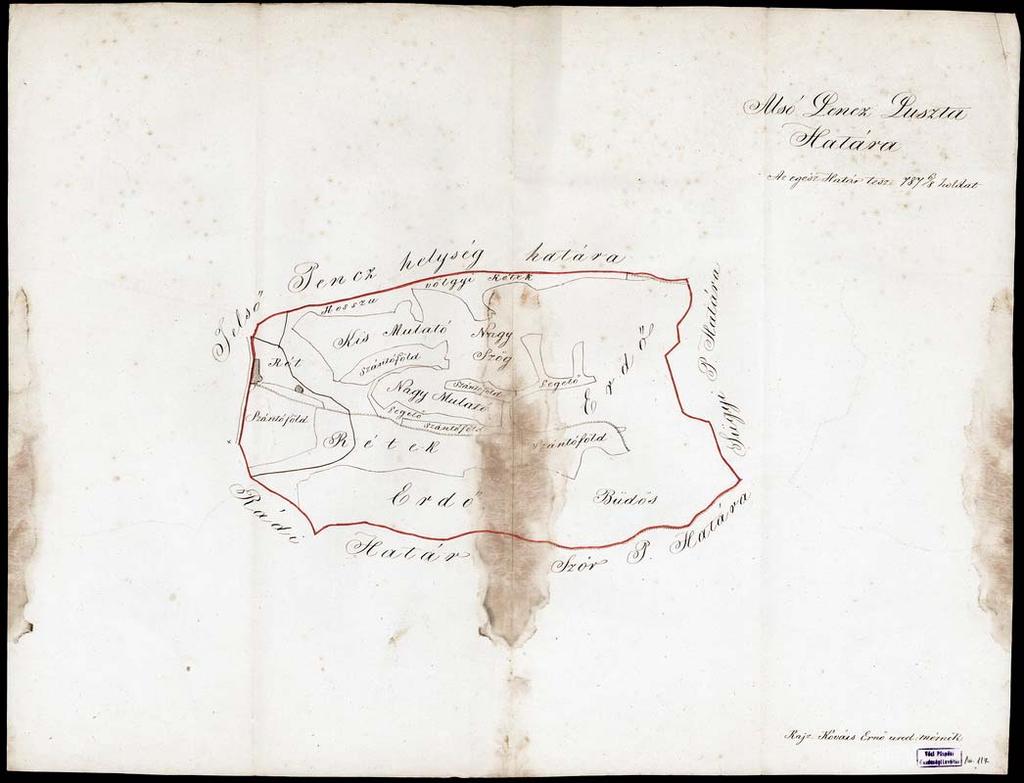 Alsó Pencz Puszta
Határa
Az egész Határ tesz 787 6/8 holdat
Felső Pencz helység határa
Hosszu völgyi Rétek
Kis Mulató
Nagy
Szög
Rét
Szántóföld
Szántóföld
Legelő
Erdő
Nagy Mulató
Szántóföld
Legelő
Szántóföld
Szántóföld
Rétek
Erdő
Büdös
Sági P. Határa
Rádi Határ
Szór P. Határa
Rajz. Kováts Ernő urad. mérnök
Váci Püspöki